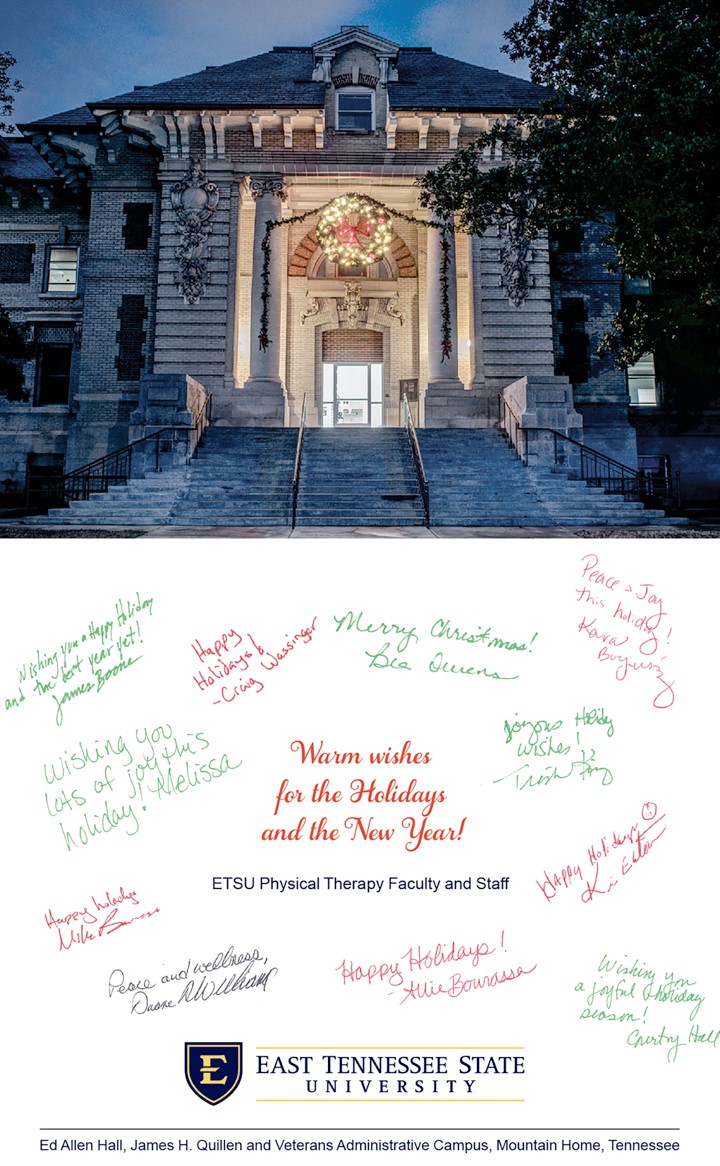 Wishing you a Happy Holiday
and the best year yet!
James Boone
Happy
Holidays
- Craig Wassinger
Merry Christmas!
Bea Owens
Peace & Joy
this holiday!
Kara
Wishing you
lots of joy this
holiday! Melissa
Joyous Holiday
wishes!
Trish
Warm wishes
for the Holidays
and the New Year!
ETSU Physical Therapy Faculty and Staff
Happy Holidays
Happy holidays
Mike
Peace and wellness,
Duane Williams
Happy Holidays!
- Allie Bourassa
Wishing you
a joyful holiday
season!
Courtney Hall
E
EAST TENNESSEE STATE
UNIVERSITY
Ed Allen Hall, James H. Quillen and Veterans Administrative Campus, Mountain Home, Tennessee